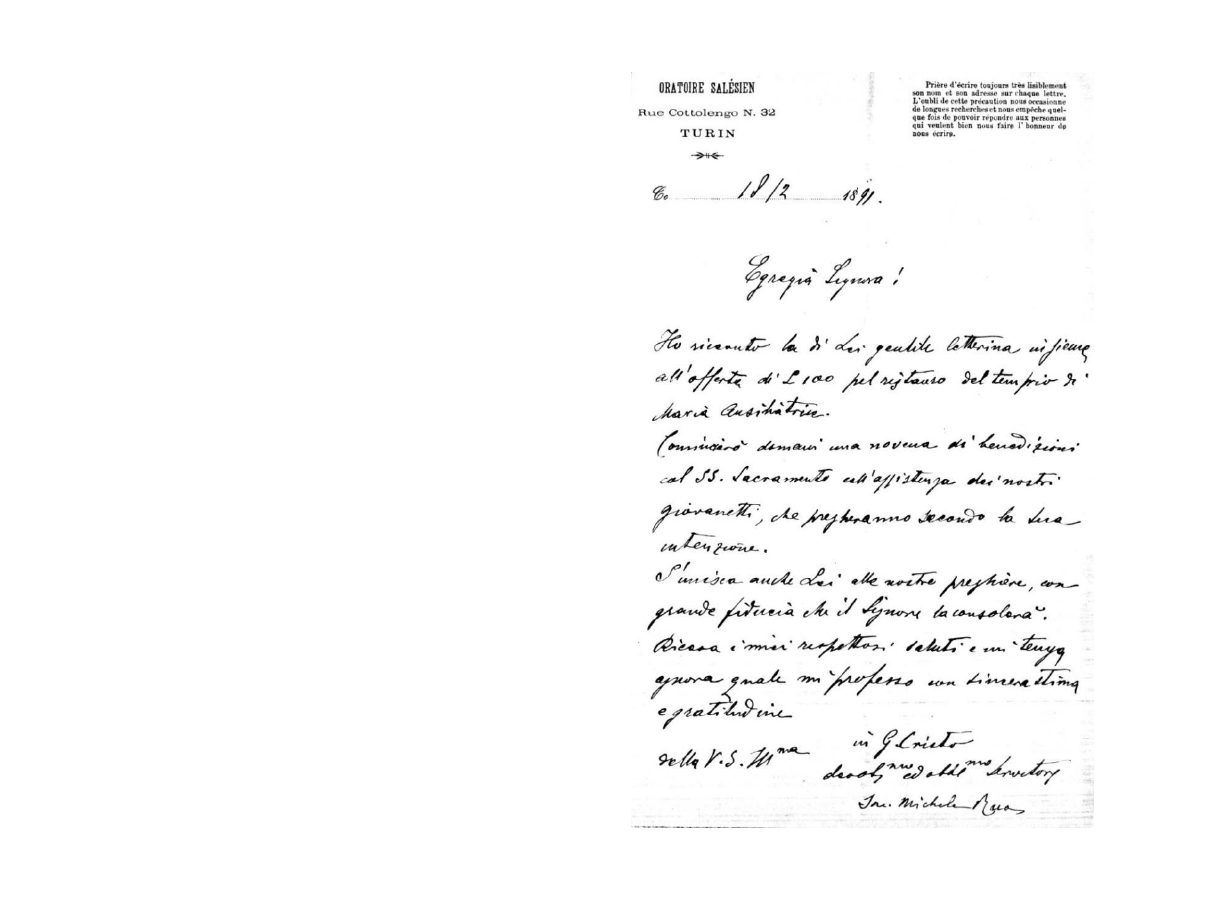 ORATOIRE SALÉSIEN
Rue Cottolengo N. 32
TURIN
Prière d'écrire toujours très lisiblement
son nom et son adresse sur chaque lettre.
L'oubli de cette précaution nous occasionne
de longues recherches et nous empêche quel-
que fois de pouvoir répondre aux personnes
qui veulent bien nous faire l'honneur de
nous écrire.
18/2 1891.
Egregia Signora!
Ho ricevuto la di Lei gentile letterina insieme
all'offerta di L 100 pel ristauro del tempio di
Maria Ausiliatrice.
Comincerò domani una novena di benedizioni
col SS. Sacramento coll'assistenza dei nostri
giovanetti, che pregheranno secondo la Sua
intenzione.
S'unisca anche Lei alle nostre preghiere, con
grande fiducia che il Signore la consolerà.
Riceva i miei rispettosi saluti e mi tenga
ognora quale mi professo con sincera stima
e gratitudine
della V. S. Ill.ma
in G. Cristo
devot.mo ed obbl.mo Servitore
Sac. Michele Rua